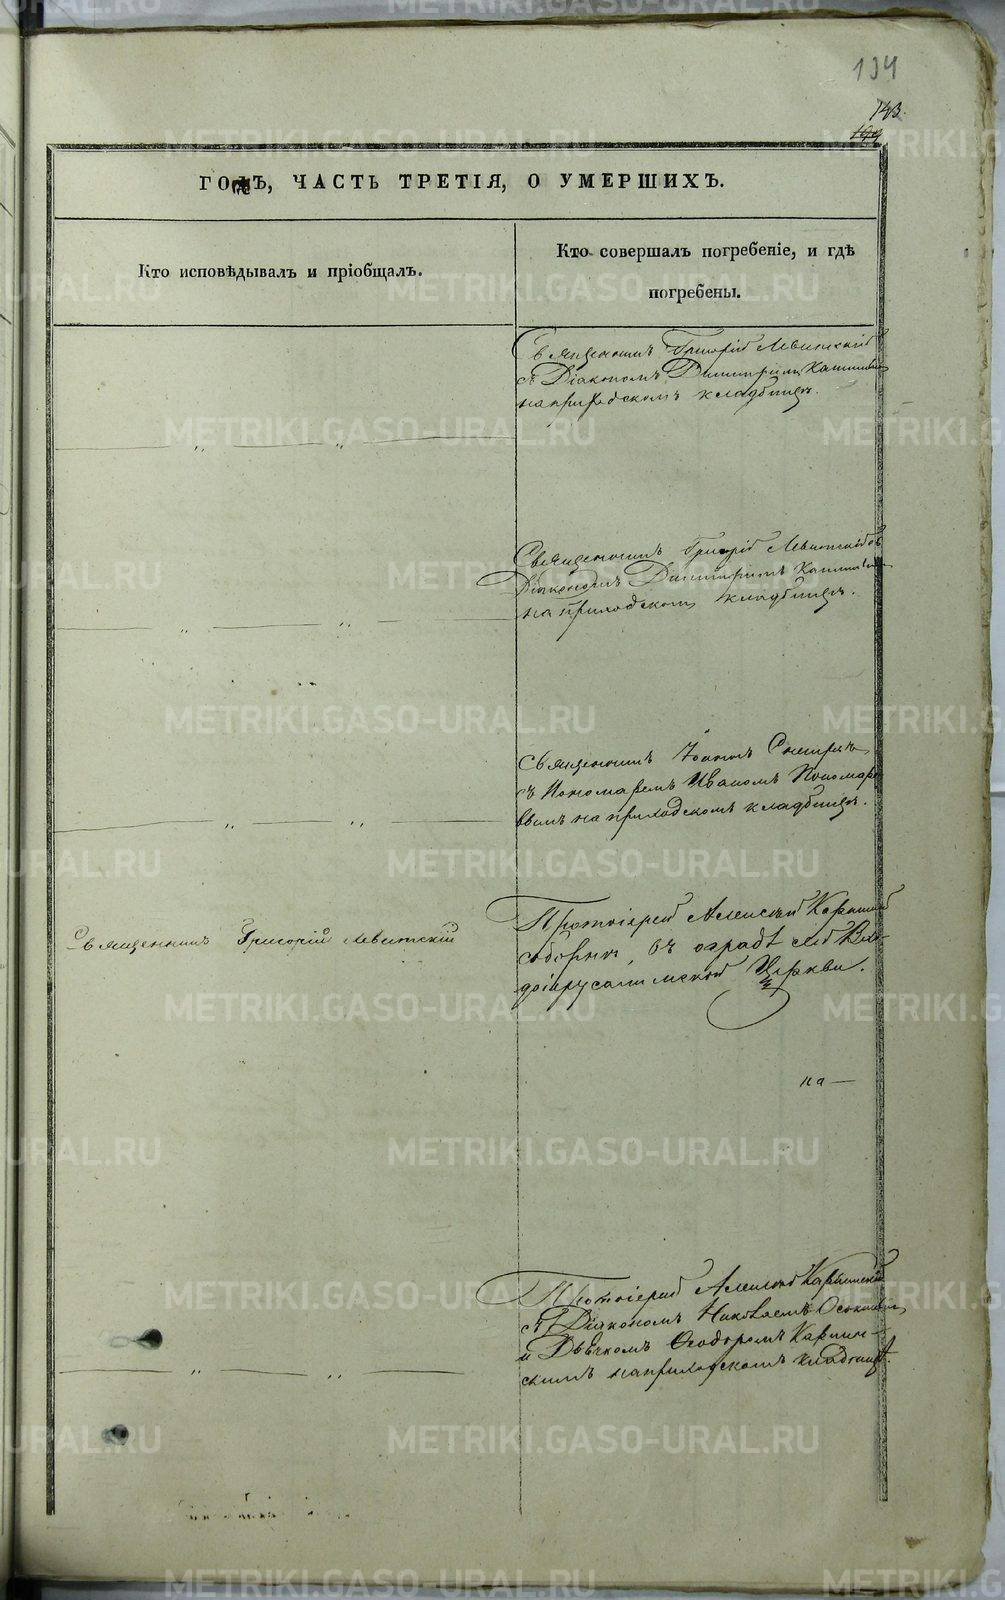 134
143.
199
ГОДЪ, ЧАСТЬ ТРЕТІЯ, О УМЕРШИХЪ.
Кто исповѣдывалъ и пріобщалъ.
Кто совершалъ погребеніе, и гдѣ
погребены.
Священникъ Григорій Левитскій
съ Діакономъ Димитріемъ
на приходскомъ кладбищѣ.
„ „
Священникъ Григорій Левитскій съ
Діакономъ Димитріемъ
на приходскомъ кладбищѣ.
„ „
Священникъ Іоаннъ
съ Пономаремъ Иваномъ Пономаре
вымъ на приходскомъ кладбищѣ.
„ „
Священникъ Григорій Левитскій
Протоіерей Алексѣй Карпинскій
соборнѣ, въ оградѣ сей Вхо-
доіерусалимской Церкви.
на —
Протоіерей Алексѣй Карпинскій
съ Діакономъ Николаемъ
и Дьячкомъ Ѳеодоромъ Карпин-
скимъ на приходскомъ кладбищѣ.
„ „
METRIKI.GASO-URAL.RU